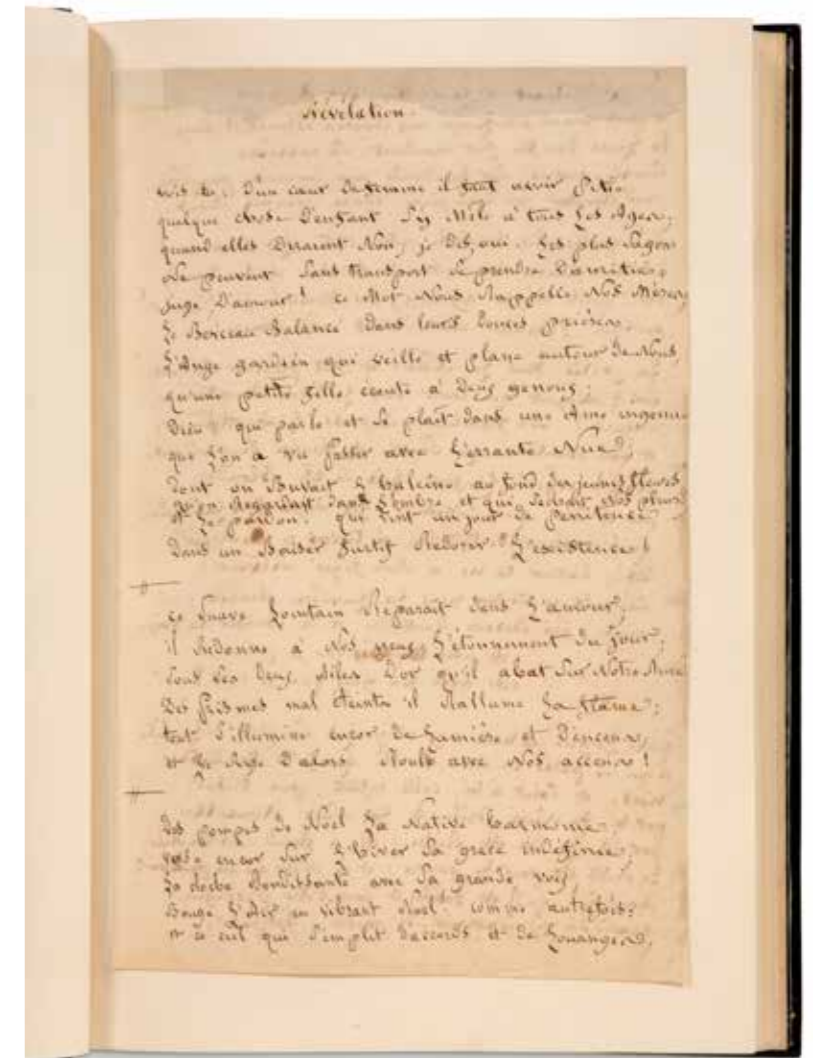 Révélation.
vois-tu, d'un cœur de femme il faut avoir pitié
quelque chose d'enfant s'y mêle à tous les âges,
quand elles diraient non, je dis, oui. les plus sages
ne peuvent sans transport se prendre d'amitié,
juge d'amour! ce mot nous rappelle nos mères,
le berceau balancé dans leurs douces prières,
l'ange gardien qui veille et plane autour de nous,
qu'une petite fille écoute à deux genoux;
Dieu qui parle et se plaît dans une âme ingénue
que l'on a vu passer avec l'errante nue,
dont on buvait l'haleine au fond des jeunes fleurs
qu'on regardait dans l'ombre et qui séchait nos pleurs
et le pardon, qui vint un jour de pénitence
dans un baiser furtif redorer l'existence!
ce suave lointain reparaît dans l'amour,
il redonne à nos yeux l'étonnement du jour,
sous ses deux ailes d'or qu'il abat sur notre âme
des prismes mal éteints il rallume la flame;
tout s'illumine encor de lumière et d'encens,
et le rire d'alors roule avec nos accens!
des pompes de Noël la native harmonie,
verse encor sur l'hiver sa grâce indéfinie,
la cloche bondissante avec sa grande voix,
bouge l'air en vibrant noël! comme autrefois;
et ce ciel qui s'emplit d'accords et de louanges,